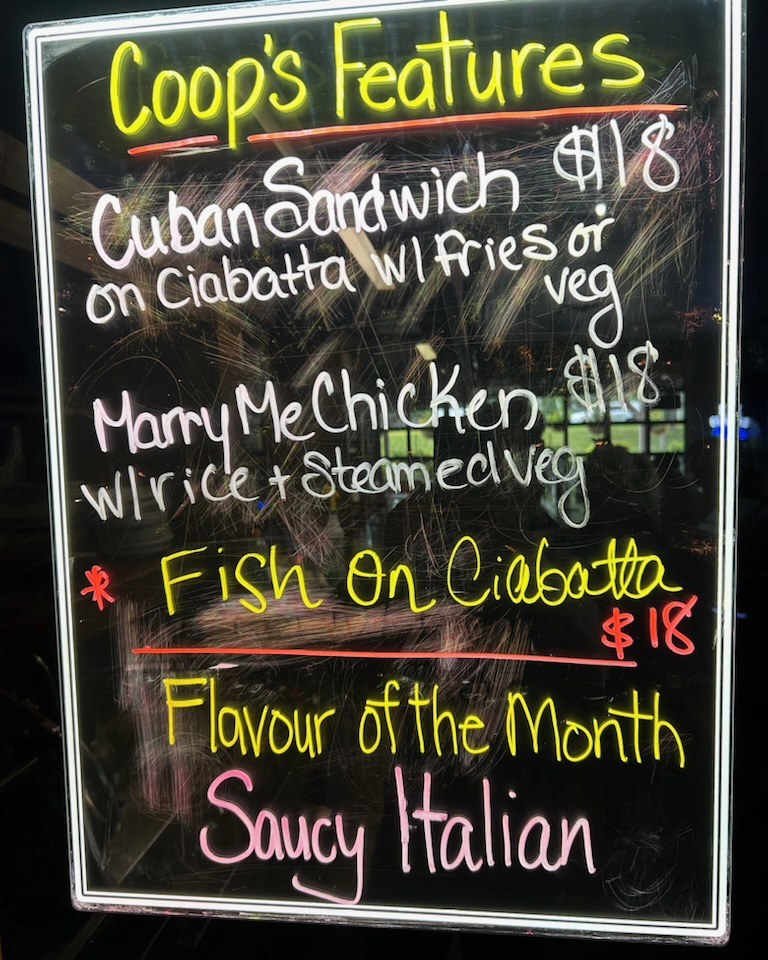 Coop's Features
Cuban Sandwich $18
on Ciabatta w/ Fries or
veg
Marry Me Chicken $18
w/ rice + Steamed veg
* Fish On Ciabatta
$18
Flavour of the Month
Saucy Italian